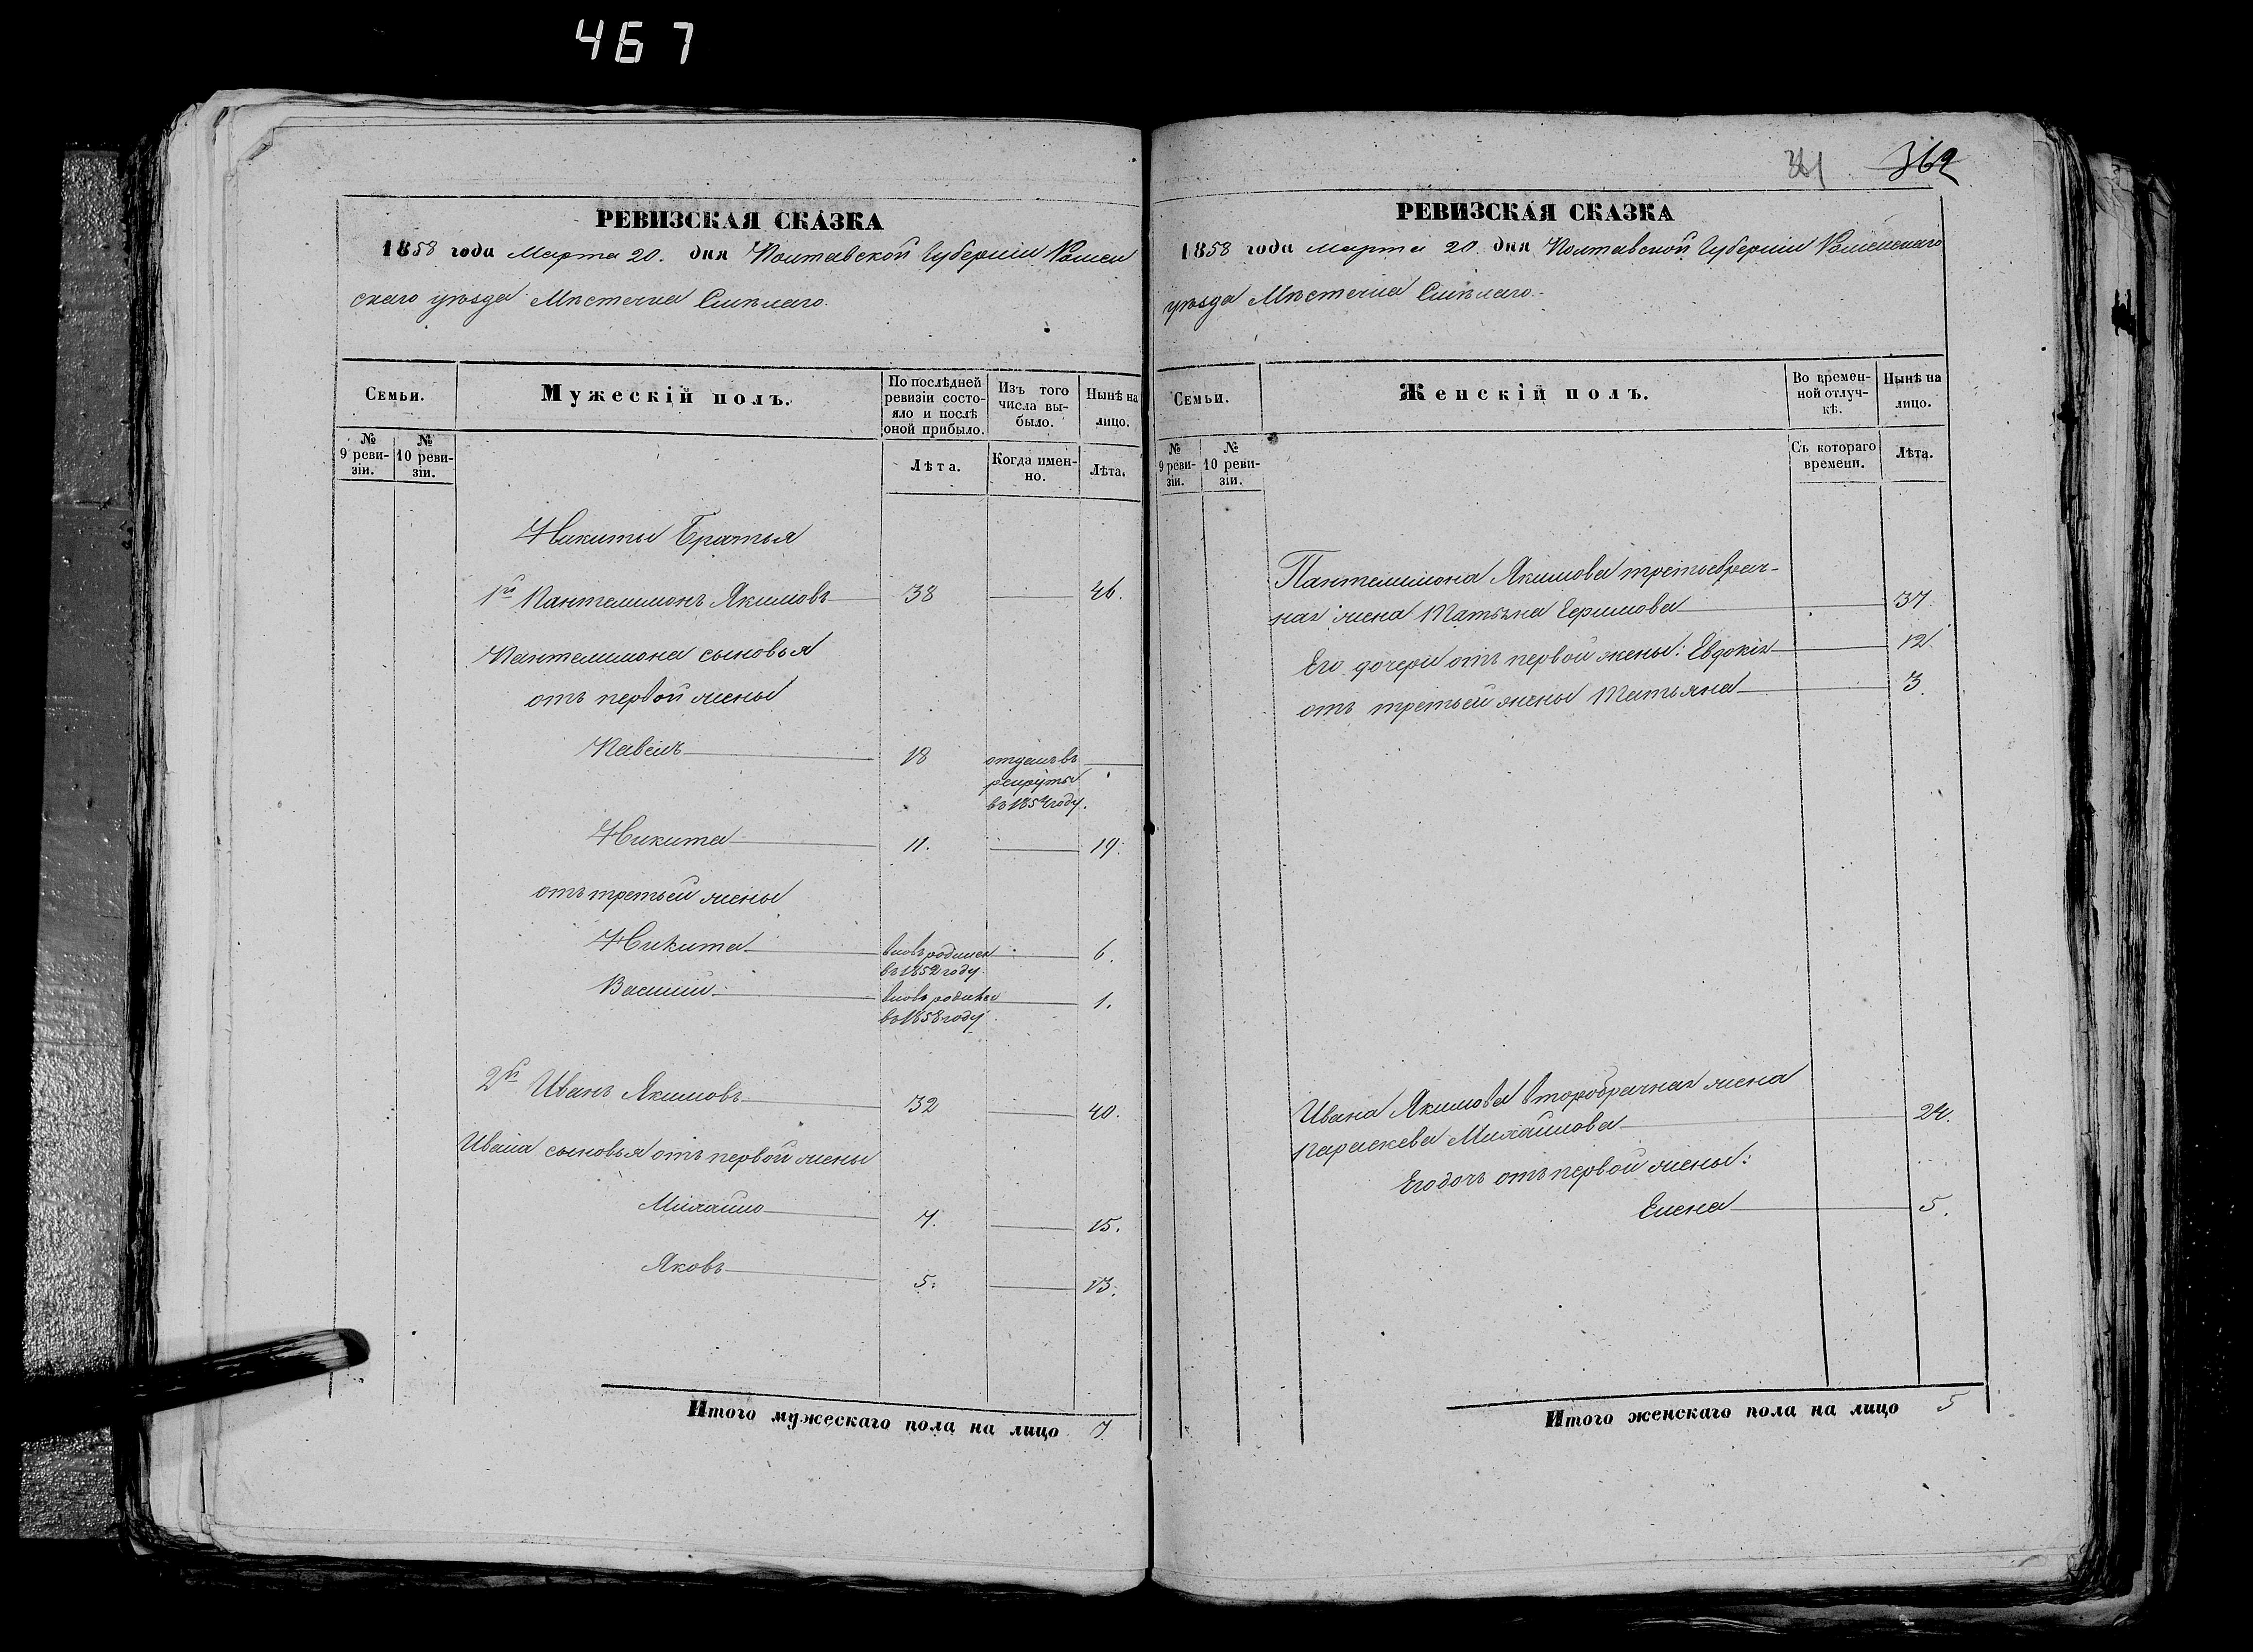 467
361 362
РЕВИЗСКАЯ СКАЗКА
1858 года Марта 20. дня Полтавской Губерніи Ромен
скаго уѣзда Мѣстечка Смѣлаго.
Семьи.
Мужескій полъ.
По послѣдней ревизіи состояло и послѣ оной прибыло.
Изъ того числа выбыло.
Нынѣ на лицо.
№ 9 ревизіи.
№ 10 ревизіи.
Лѣта.
Когда именно.
Лѣта.
Никиты Братья
1й Пантелимонъ Якимовъ 38 46.
Пантелимона сыновья
отъ первой жены
Павелъ 18 отданъ въ
рекруты
въ 1854 году.
Никита 11. 19.
отъ третьей жены
Никита вновь родился 6.
въ 1852 году.
Василій вновь родился 1.
въ 1858 году
2й Иванъ Якимовъ 32 40.
Ивана сыновья отъ первой жены
Михайло 7. 15.
Яковъ 5. 13.
Итого мужескаго пола на лицо 7
РЕВИЗСКАЯ СКАЗКА
1858 года марта 20. дня Полтавской Губерніи Роменскаго
уѣзда Мѣстечка Смѣлаго.
Семьи.
Женскій полъ.
Во временной отлучкѣ.
Нынѣ на лицо.
№ 9 ревизіи.
№ 10 ревизіи.
Съ котораго времени.
Лѣта.
Пантелимона Якимова третьебрач-
ная жена Татьяна Ефимова 37.
Его дочери отъ первой жены: Евдокія 12
отъ третьей жены Татьяна 3.
Ивана Якимова второбрачная жена
Параскева Михайлова 24.
Его дочь отъ первой жены:
Елена 5.
Итого женскаго пола на лицо 5